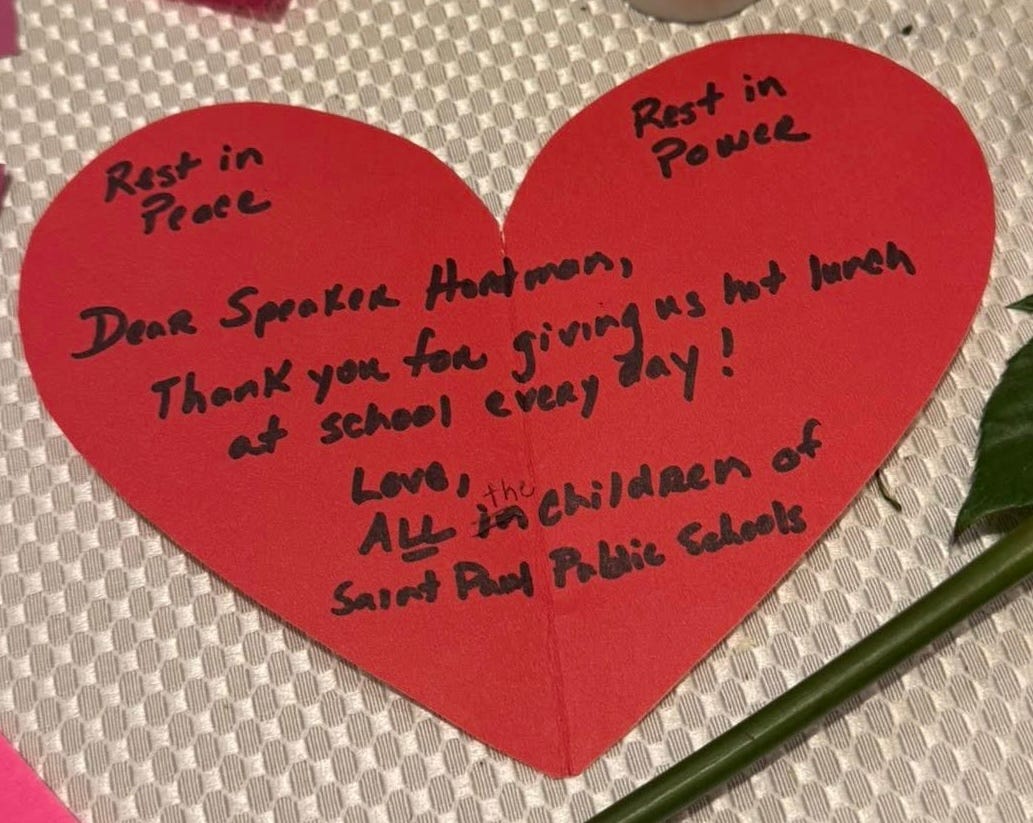 Rest in
Peace
Rest in
Power
Dear Speaker Hortman,
Thank you for giving us hot lunch
at school every day!
Love,
ALL the children of
Saint Paul Public Schools